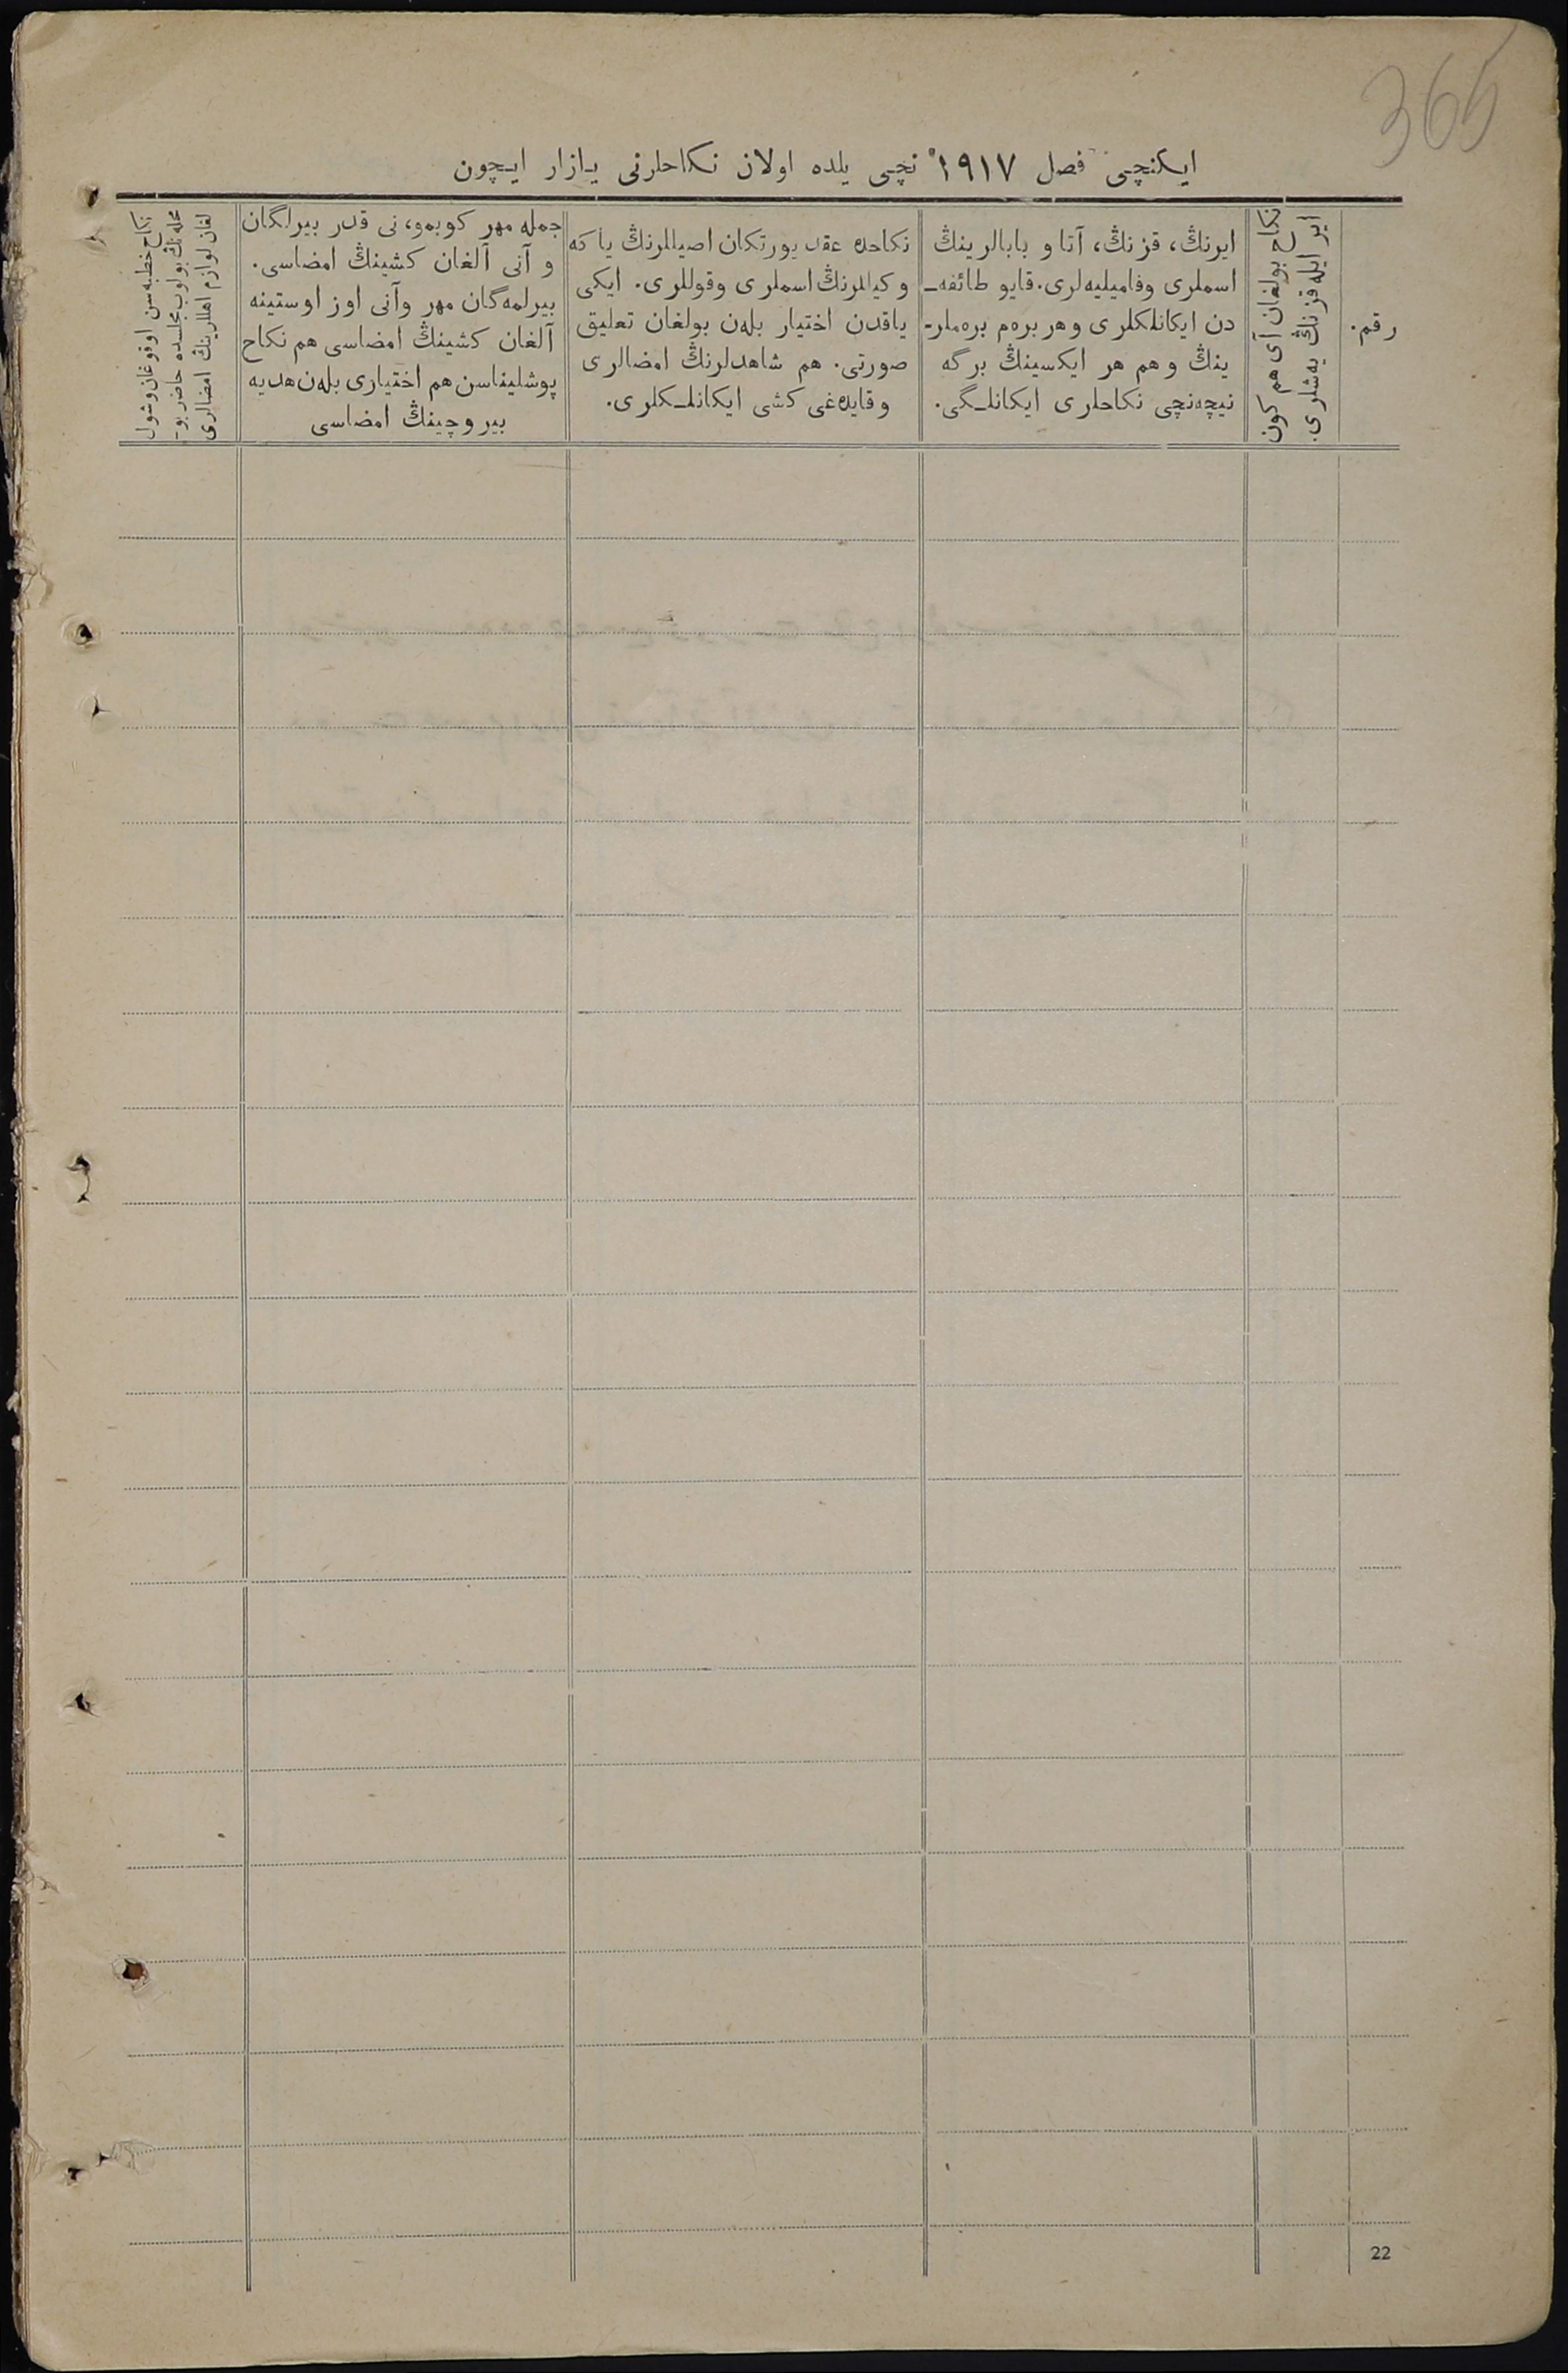 365
ایکنچی فصل ۱۹۱۷ نچی یلده اولان نکاحلرنی یازار ایچون
رقم.
نکاح بولغان آی هم کون
ایر ایله قزنڭ یه‌شلری.
ایرنڭ، قزنڭ، آتا و بابالرینڭ
اسملری وفامیلیه‌لری. قایو طائفه‌ـ
دن ایکانلکلری و هر برەم برەملر-
ینڭ و هم هر ایکسینڭ برگه
نیچه‌نچی نکاحلری ایکانلـگی.
نکاحده عقد یورتکان اصیللرنڭ یا که
وکیللرنڭ اسملری وقوللری. ایکی
یاقدن اختیار بلەن بولغان تعلیق
صورتی. هم شاهدلرنڭ امضالری
وقایدەغی کشی ایکانلـکلری.
جمله مهر کوبمو، نی قدر بیرلگان
و آنی آلغان کشینڭ امضاسی.
بیرلمه‌گان مهر وآنی اوز اوستینه
آلغان کشینڭ امضاسی هم نکاح
پوشلیناسن هم اختیاری بلەن هدیه
بیروچینڭ امضاسی
نکاح خطبه‌سن اوقوغان وشول
محله‌نڭ بولوب مجلسده حاضر بو-
لغان لوازم اهللرینڭ امضالری
22